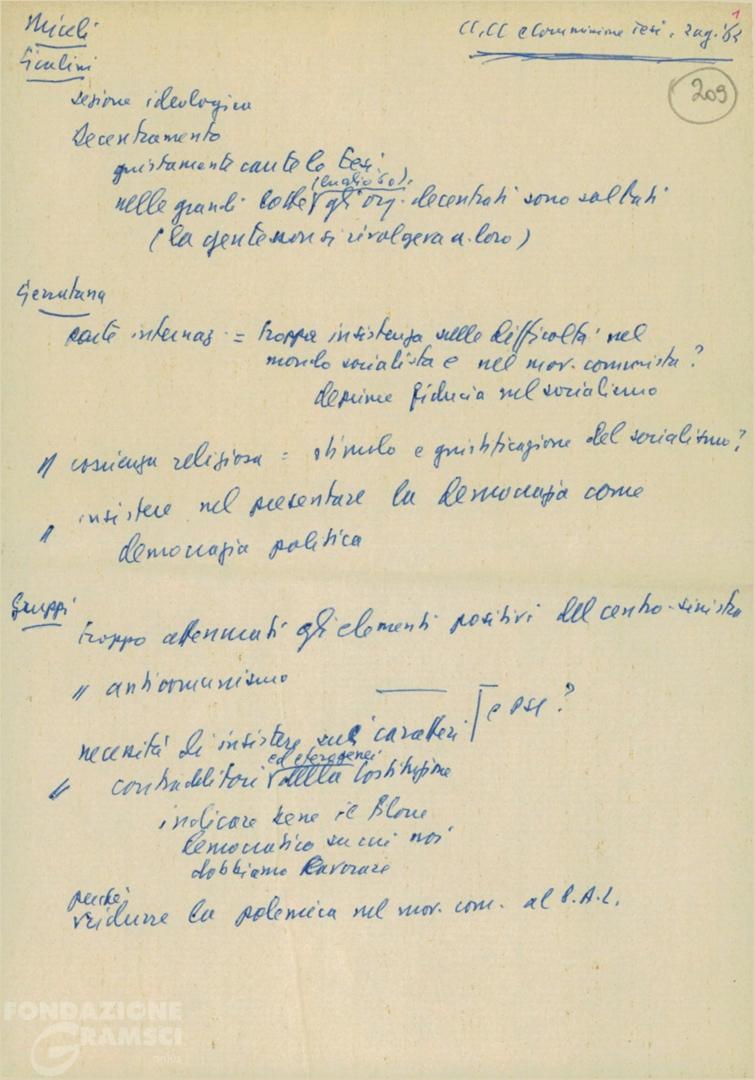 1
Miceli
CC, CC e Commissione Tesi,
209
sezione ideologica
Decentramento
giustamente caute le tesi
(luglio 60).
nelle grandi lotte gli org. decentrati sono saltati
(la gente non si rivolgeva a loro)
Gerratana
parte internaz = troppa insistenza sulle difficoltà nel
mondo socialista e nel mov. comunista?
deprime fiducia nel socialismo
" coscienza religiosa = stimolo e giustificazione del socialismo?
insistere nel presentare la democrazia come
"
democrazia politica
Gruppi
troppo attenuati gli elementi positivi del centro-sinistra
" anticomunismo
e PSI?
necessità di insistere sui caratteri
ed eterogenei
" contraddittori della Costituzione
indicare bene il Blocco
democratico su cui noi
dobbiamo lavorare
perché
ridurre la polemica nel mov. com. al P.A.L.
FONDAZIONE
GRAMSCI
onlus